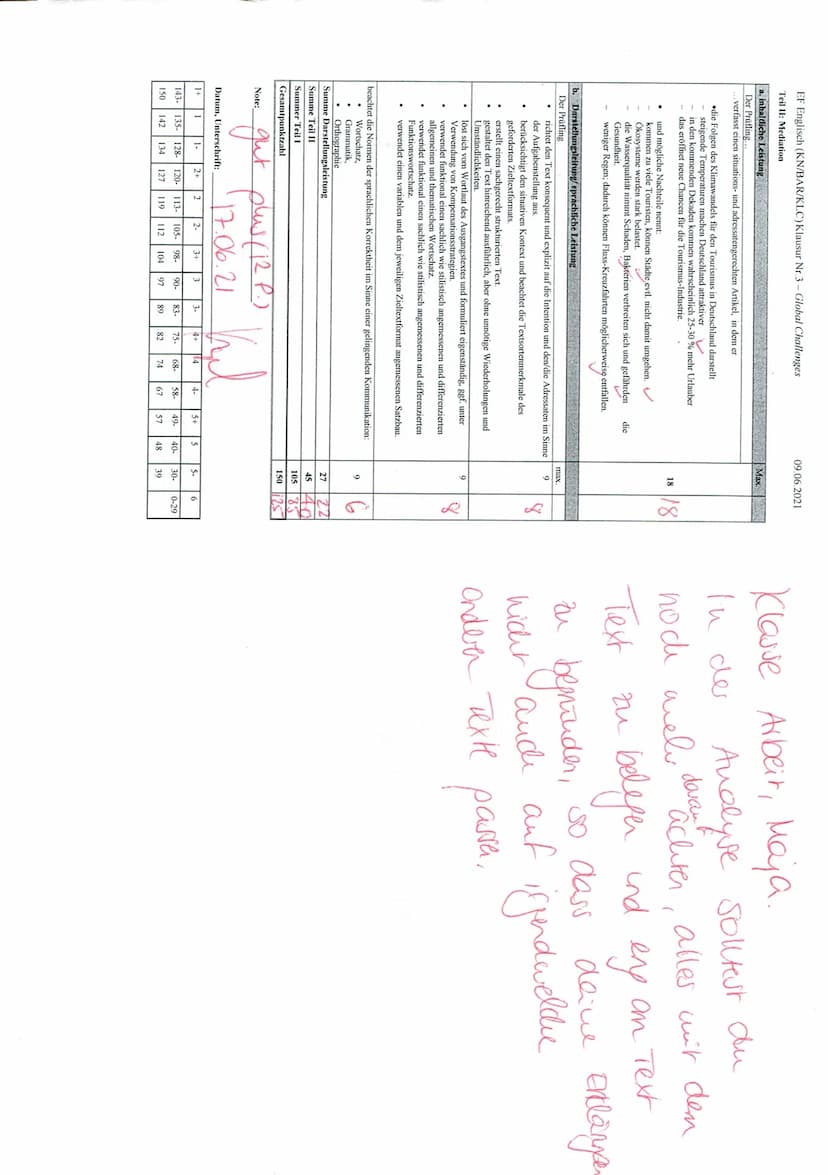 EF Englisch (KN/BAR/KLC) Klausur Nr.3 – Global Challenges 09.06.2021
Teil II: Mediation
a. inhaltliche Leistung Max.
Der Prüfling...
…verfasst einen situations- und adressatengerechten Artikel, in dem er
•die Folgen des Klimawandels für den Tourismus in Deutschland darstellt
– steigende Temperaturen machen Deutschland attraktiver
– in den kommenden Dekaden kommen wahrscheinlich 25-30 % mehr Urlauber
– das eröffnet neue Chancen für die Tourismus-Industrie.
• und mögliche Nachteile nennt: 18 18
– kommen zu viele Touristen, können Städte evtl. nicht damit umgehen.
– Ökosysteme werden stark belastet.
– die Wasserqualität nimmt Schaden, Bakterien verbreiten sich und gefährden die
Gesundheit.
– weniger Regen; dadurch können Fluss-Kreuzfahrten möglicherweise entfallen.
b. Darstellungsleistung/ sprachliche Leistung
Der Prüfling max.
• richtet den Text konsequent und explizit auf die Intention und den/die Adressaten im Sinne 9 8
der Aufgabenstellung aus.
• berücksichtigt den situativen Kontext und beachtet die Textsortenmerkmale des
geforderten Zieltextformats.
• erstellt einen sachgerecht strukturierten Text.
• gestaltet den Text hinreichend ausführlich, aber ohne unnötige Wiederholungen und
Umständlichkeiten.
• löst sich vom Wortlaut des Ausgangstextes und formuliert eigenständig, ggf. unter 9 8
Verwendung von Kompensationsstrategien.
• verwendet funktional einen sachlich wie stilistisch angemessenen und differenzierten
allgemeinen und thematischen Wortschatz.
• verwendet funktional einen sachlich wie stilistisch angemessenen und differenzierten
Funktionswortschatz.
• verwendet einen variablen und dem jeweiligen Zieltextformat angemessenen Satzbau.
beachtet die Normen der sprachlichen Korrektheit im Sinne einer gelingenden Kommunikation:
• Wortschatz, 9 6
• Grammatik,
• Orthographie
Summe Darstellungsleistung 27 22
Summe Teil II 45 40
Summer Teil I 105 85
Gesamtpunktzahl 150 125
Note: gut plus (12 P.)
Datum, Unterschrift: 17.06.21
1+ 1 1- 2+ 2 2- 3+ 3 3- 4+ 4 4- 5+ 5 5- 6
143- 135- 128- 120- 113- 105- 98- 90- 83- 75- 68- 58- 49- 40- 30- 0-29
150 142 134 127 119 112 104 97 89 82 74 67 57 48 39
Klasse Arbeit, Maja.
In der Analyse solltest du
noch mehr darauf achten, alles mit dem
Text zu belegen und eng am Text
zu begründen, so dass deine Erklärungen
nicht auch auf irgendwelche
anderen Texte passen.